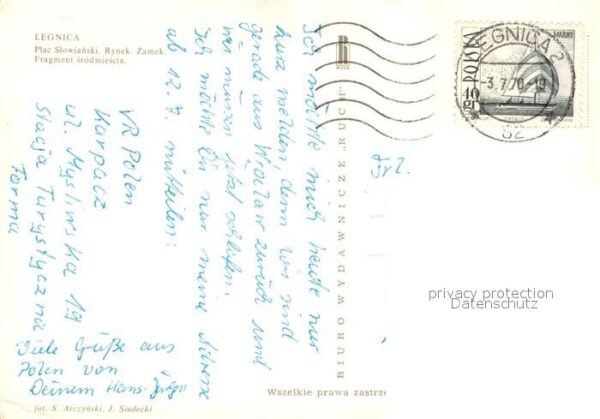 LEGNICA
Plac Słowiański. Rynek. Zamek.
Fragment śródmieścia.
Ich möchte mich heute nur
kurz melden, denn wir sind
gerade aus Wrocław zurück und
wir müssen jetzt schlafen.
Ich möchte Dir nur meine Adresse
ab 12. 7. mitteilen:
VR Polen
Karpacz
ul. Myśliwska 19
Stacja Turystyczna
Farma
Viele Grüße aus
Polen von
Deinem Hans-Jürgen
fot. S. Arczyński, J. Siudecki
BIURO WYDAWNICZE „RUCH”
Wszelkie prawa zastrze
POLSKA
40 gr
LEGNICA 2
-3.7.70-19
Frl.
privacy protection
Datenschutz